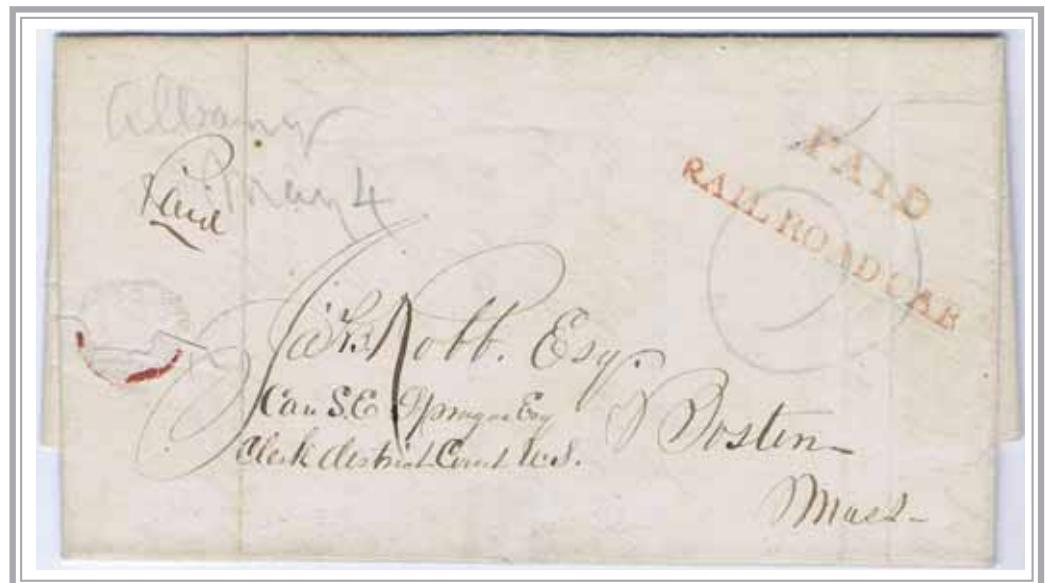 Albany
May 4
Paid
PAID
RAIL ROAD CAR
Jas. Robb. Esq.
Care S.E Sprague Esq
Clerk district Court U.S.
Boston
Mass-